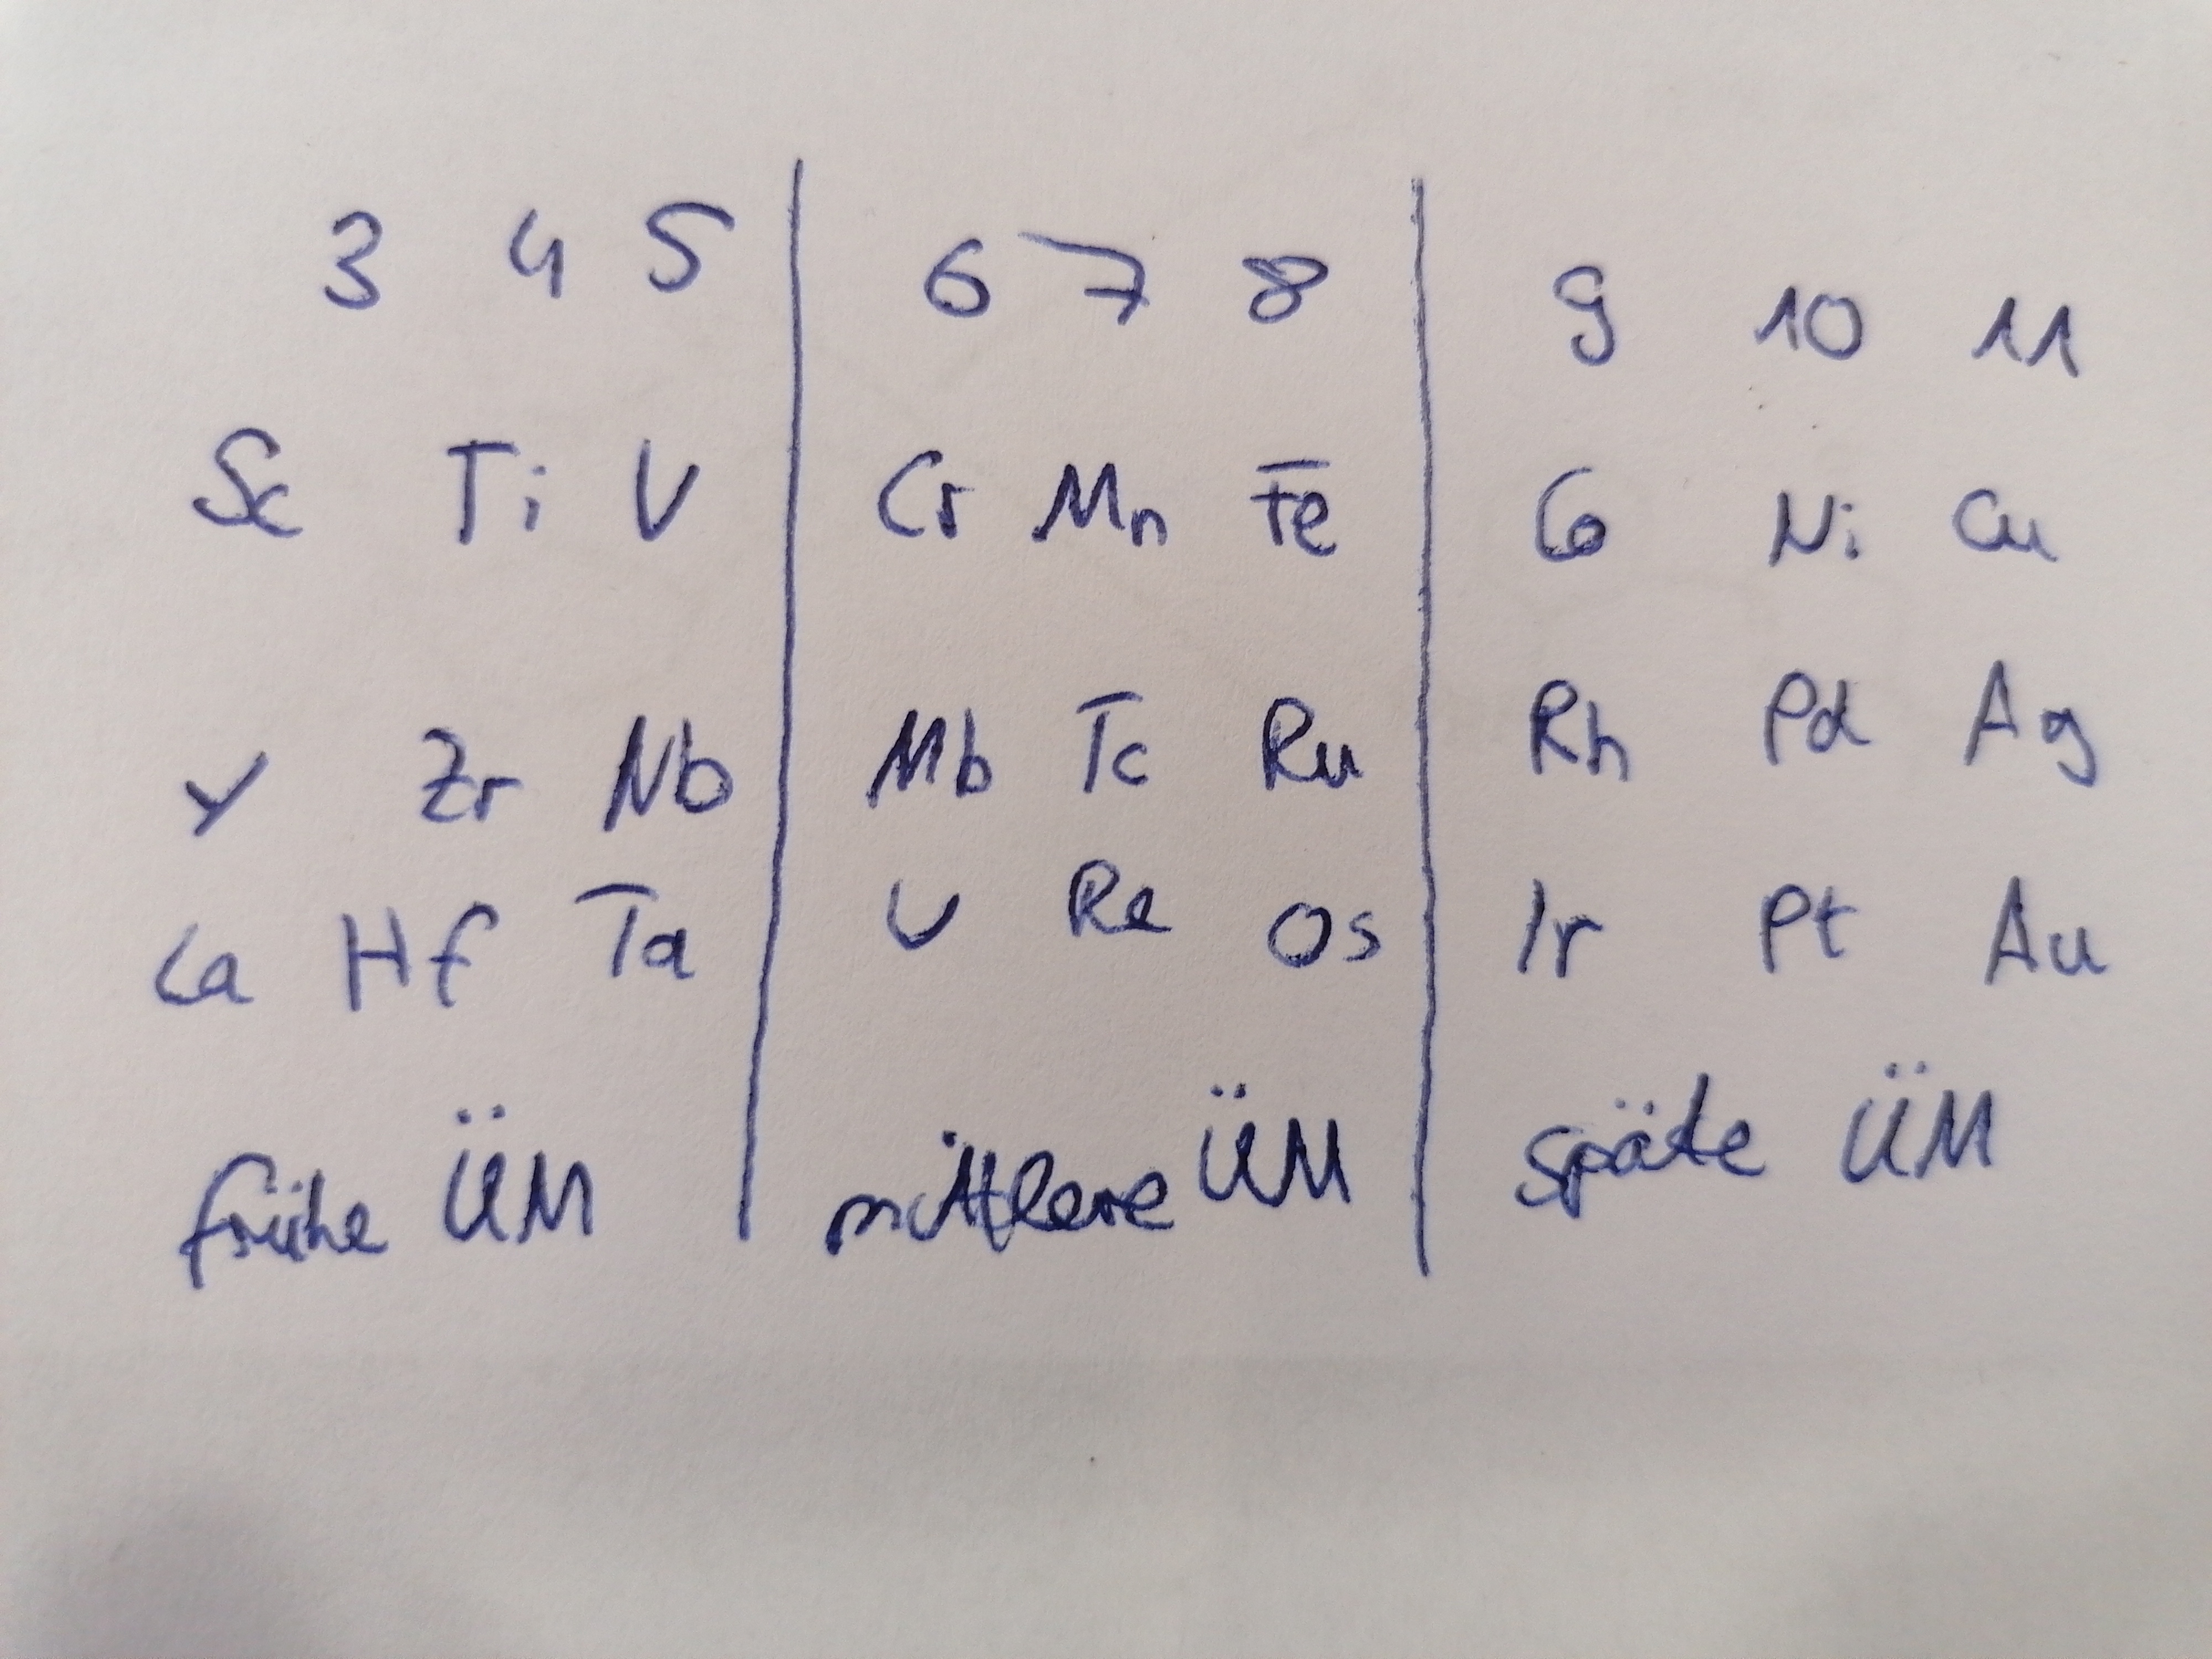 3 4 5 6 7 8 9 10 11
Sc Ti V Cr Mn Fe Co Ni Cu
Y Zr Nb Mb Tc Ru Rh Pd Ag
La Hf Ta V Re Os Ir Pt Au
frühe ÜM mittlere ÜM späte ÜM